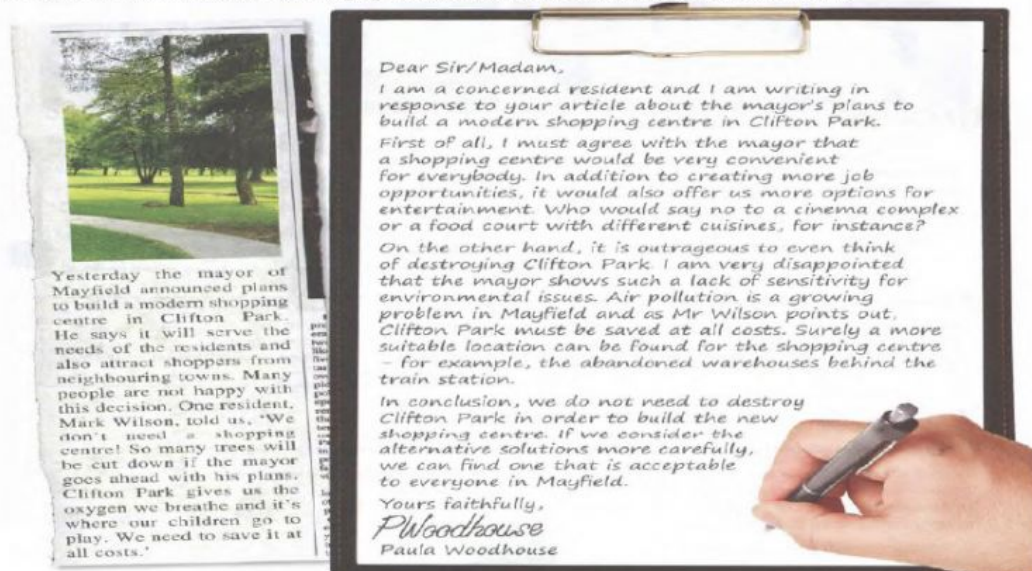 Yesterday the mayor of
Mayfield announced plans
to build a modern shopping
centre in Clifton Park.
He says it will serve the
needs of the residents and
also attract shoppers from
neighbouring towns. Many
people are not happy with
this decision. One resident,
Mark Wilson, told us, 'We
don't need a shopping
centre! So many trees will
be cut down if the mayor
goes ahead with his plans.
Clifton Park gives us the
oxygen we breathe and it's
where our children go to
play. We need to save it at
all costs.'
Dear Sir/Madam,
I am a concerned resident and I am writing in
response to your article about the mayor's plans to
build a modern shopping centre in Clifton Park.
First of all, I must agree with the mayor that
a shopping centre would be very convenient
for everybody. In addition to creating more job
opportunities, it would also offer us more options for
entertainment. Who would say no to a cinema complex
or a food court with different cuisines, for instance?
On the other hand, it is outrageous to even think
of destroying Clifton Park. I am very disappointed
that the mayor shows such a lack of sensitivity for
environmental issues. Air pollution is a growing
problem in Mayfield and as Mr Wilson points out,
Clifton Park must be saved at all costs. Surely a more
suitable location can be found for the shopping centre
– for example, the abandoned warehouses behind the
train station.
In conclusion, we do not need to destroy
Clifton Park in order to build the new
shopping centre. If we consider the
alternative solutions more carefully,
we can find one that is acceptable
to everyone in Mayfield.
Yours faithfully,
PWoodhouse
Paula Woodhouse